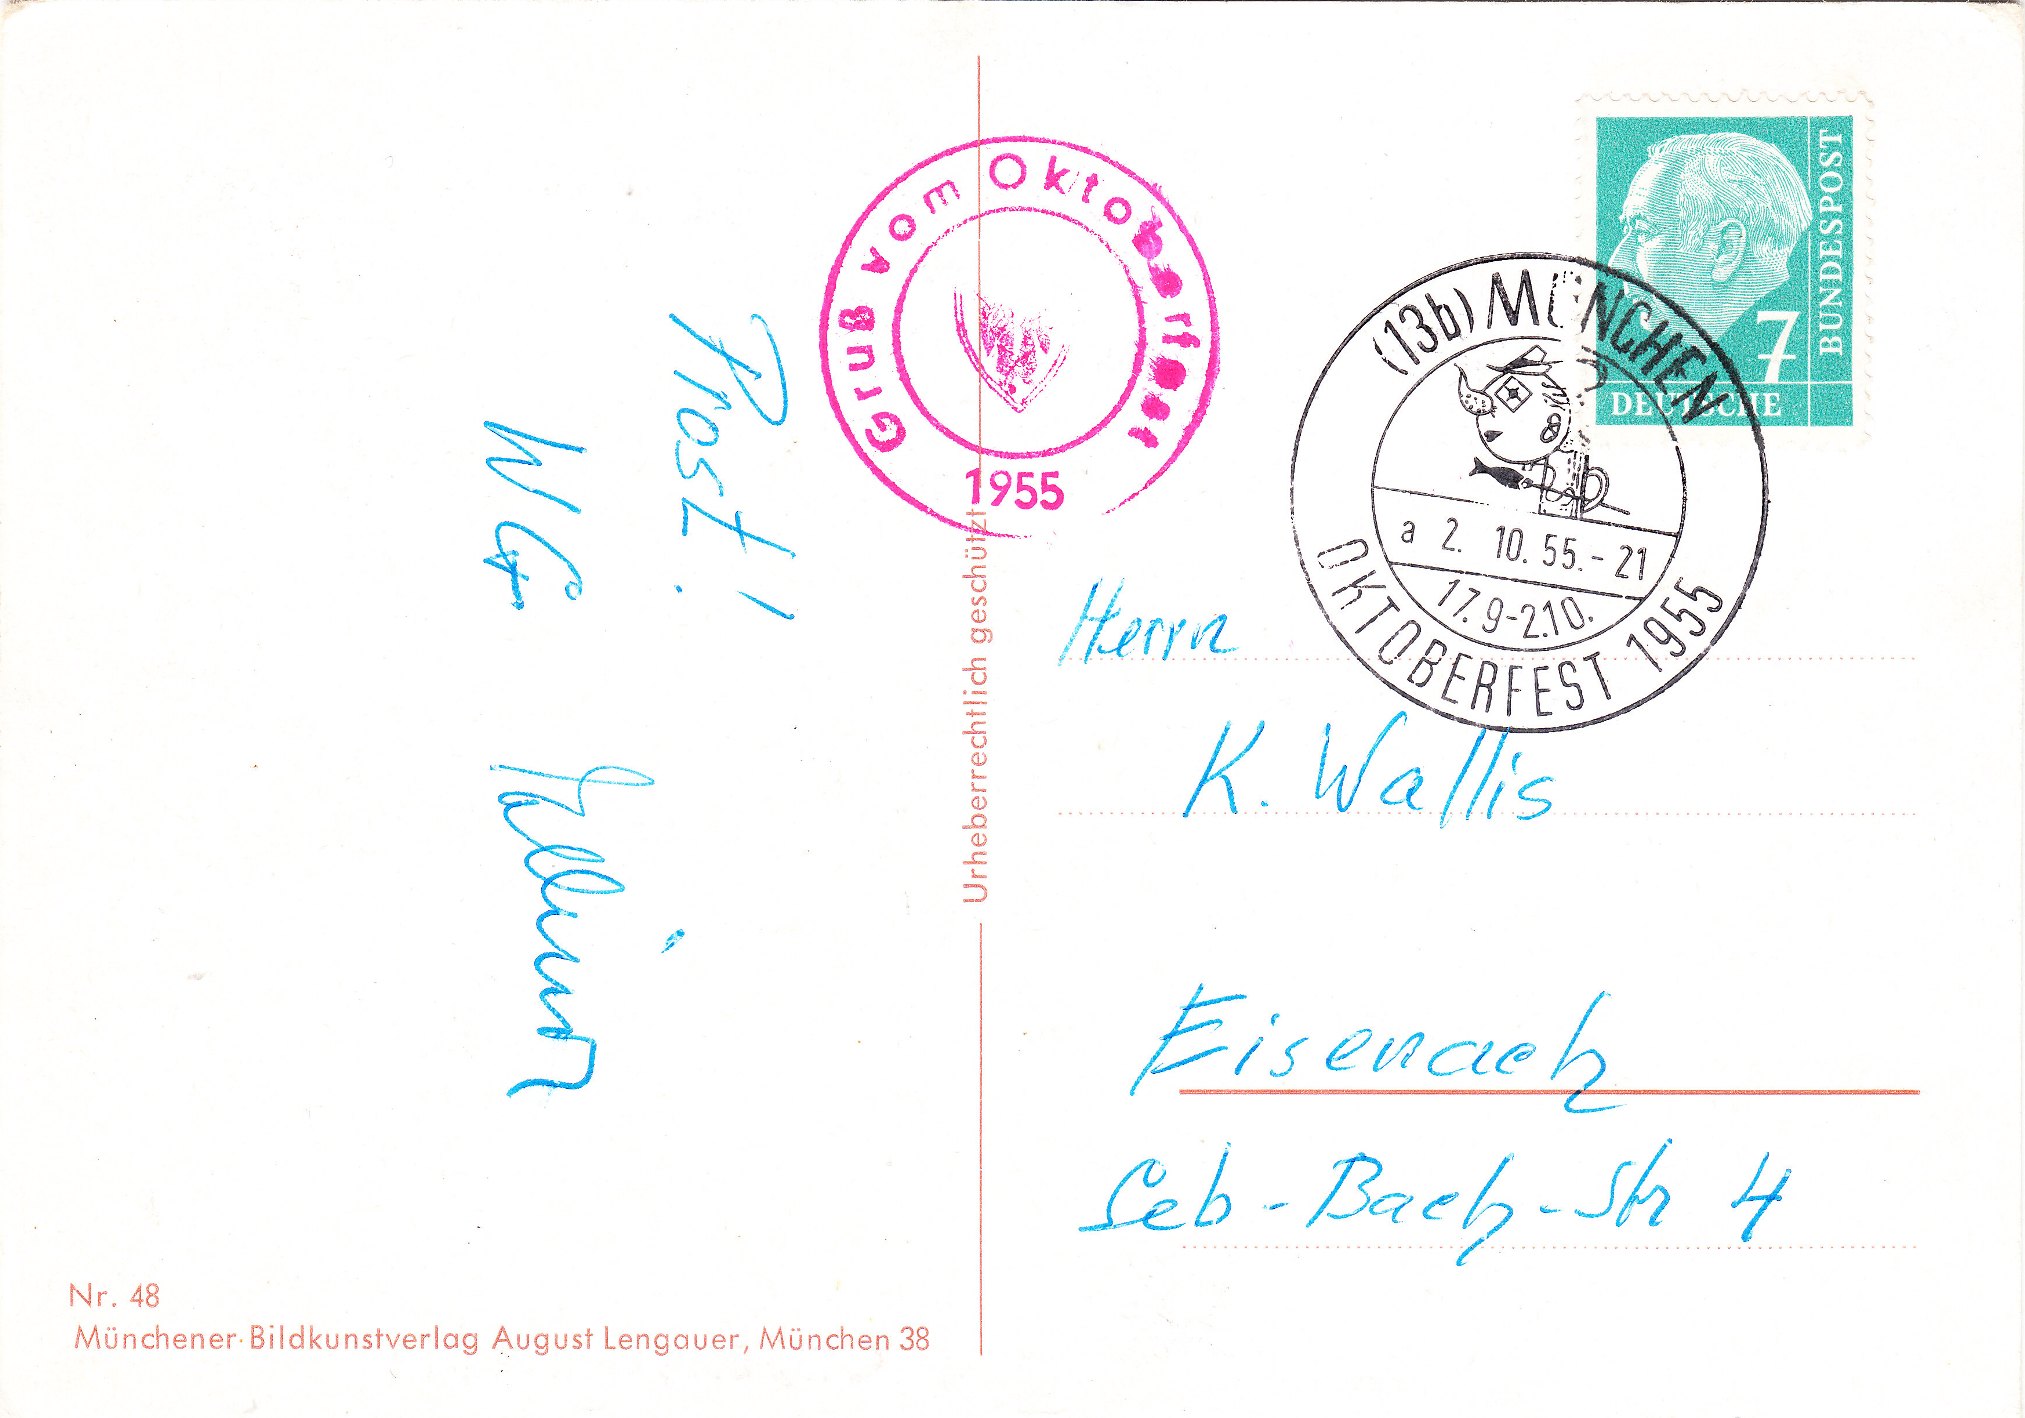 Gruß vom Oktoberfest
1955
Prost!
WG
Urheberrechtlich geschützt
Nr. 48
Münchener Bildkunstverlag August Lengauer, München 38
BUNDESPOST
7
DEUTSCHE
(13b) MÜNCHEN
a 2. 10. 55. - 21
17.9-2.10.
OKTOBERFEST 1955
Herrn
K. Wallis
Eisenach
Seb-Bach-Str 4